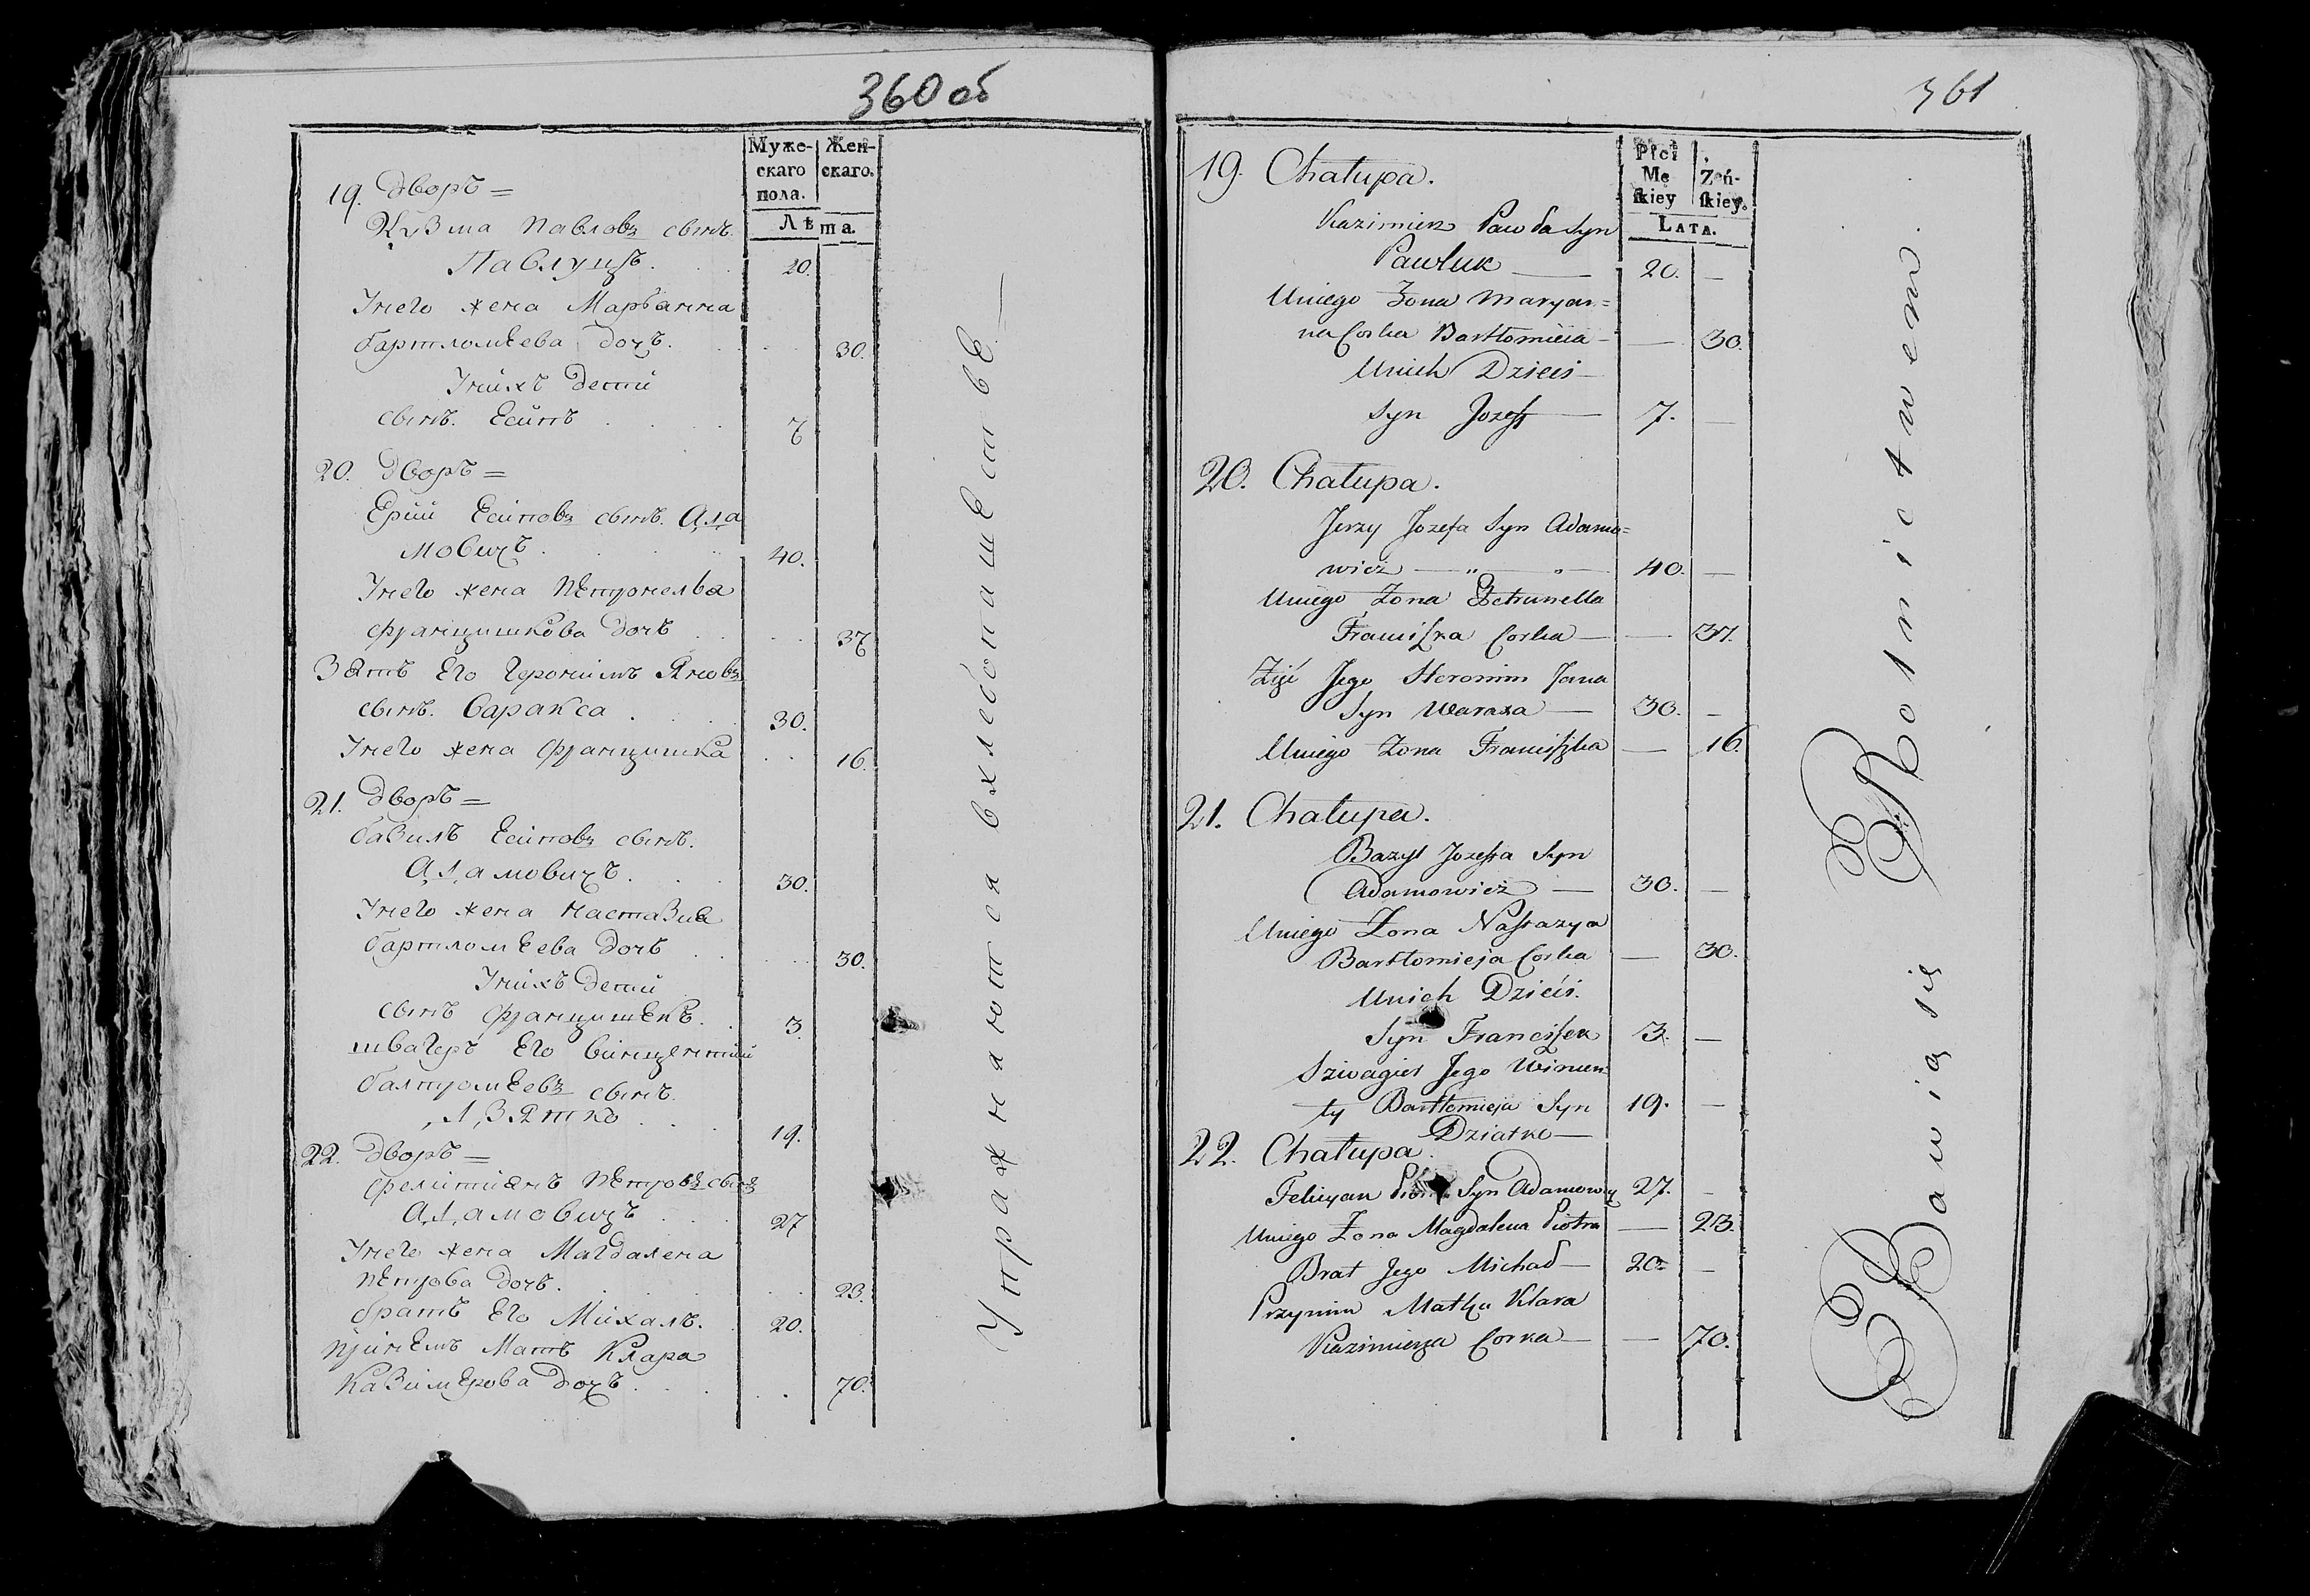 360 об
Муже-
скаго
пола.
Жен-
скаго.
Лѣта.
19. Дворъ =
Кузма Павловъ сынъ
Павлуцъ . . 20.
Унего жена Марьанна
бартломѣева дочъ. . . 30.
Унихъ дети
сынъ. Есипъ . . . 7
20. Дворъ =
Ерий Есиповъ сынъ. Ада
мовичъ . . 40.
Унего жена Петронелья
францишкова дочь . . . 37
Зять Его Героним Яновъ
сынъ.Варакса . . . 30.
Унего жена францишка . . 16.
21. Дворъ =
базиль Есиповъ сынъ.
Адамовичъ. . . 30.
Унего жена Настазия
бартломѣева дочь . . . 30.
Унихъ дети
сынъ францишекъ. . 3.
швагеръ Его Винцентий
балтромѣевъ сынъ.
Дзятко . . . 19.
22. Дворъ =
фелитиянъ Петровъ сынъ
Адамовичъ . . 27
Унего жена Магдалена
Петрова дочь. . . . 23.
братъ Его Михалъ. . 20.
Приемъ Мать Клара
Казимѣрова дочъ . . . 70.
Упражнаютсявхлебопашествѣ —
361
Płci
Mę
skiey
Żeń-
skiey.
LATA.
19. Chałupa.
Kazimierz Pawła Syn
Pawluk — 20. —
Uniego Żona Maryan=
na Corka Bartłomieia — — 30.
Unich Dzieci —
Syn Jozeff — 7. —
20. Chałupa.
Jerzy Jozefa Syn Adamo=
wicz — " — " — 40. —
Uniego Żona Petrunella
Franciszka Corka — — 37.
Zięć Jego Heronim Jana
Syn Waraxa — 30. —
Uniego Żona Franciszka — 16.
21. Chałupa.
Bazyl Jozeffa Syn
Adamowicz — 30. —
Uniego Żona Nastazya
Bartłomieja Corka — 30.
Unich Dzieci.
Syn Franciszek 3. —
Szwagier Jego Wincen=
ty Bartłomieja Syn 19. —
Dziatko —
22. Chałupa.
Felicyan Syn Adamowicz 27. —
Uniego Żona Magdalena Piotra — 23.
Brat Jego Michał — 20. —
Przyimu Matka Klara
Kazimierza Corka — — 70.
Bawią się Rolnictwem.